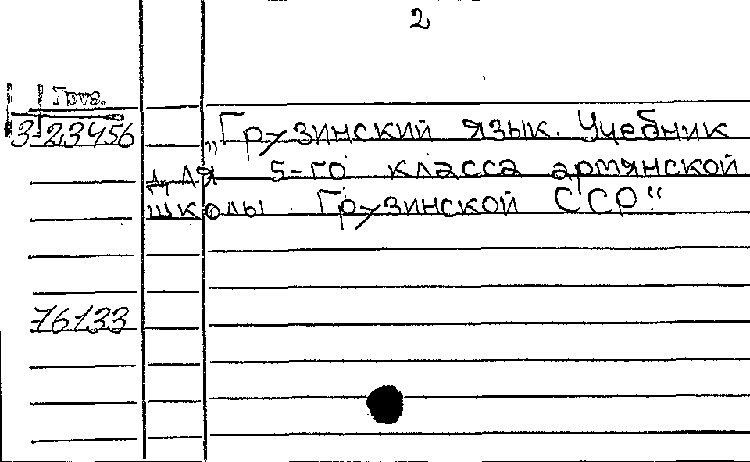 2
Груз.
3-23456
„Грузинский язык. Учебник
для 5-го класса армянской
школы Грузинской ССР“
76133